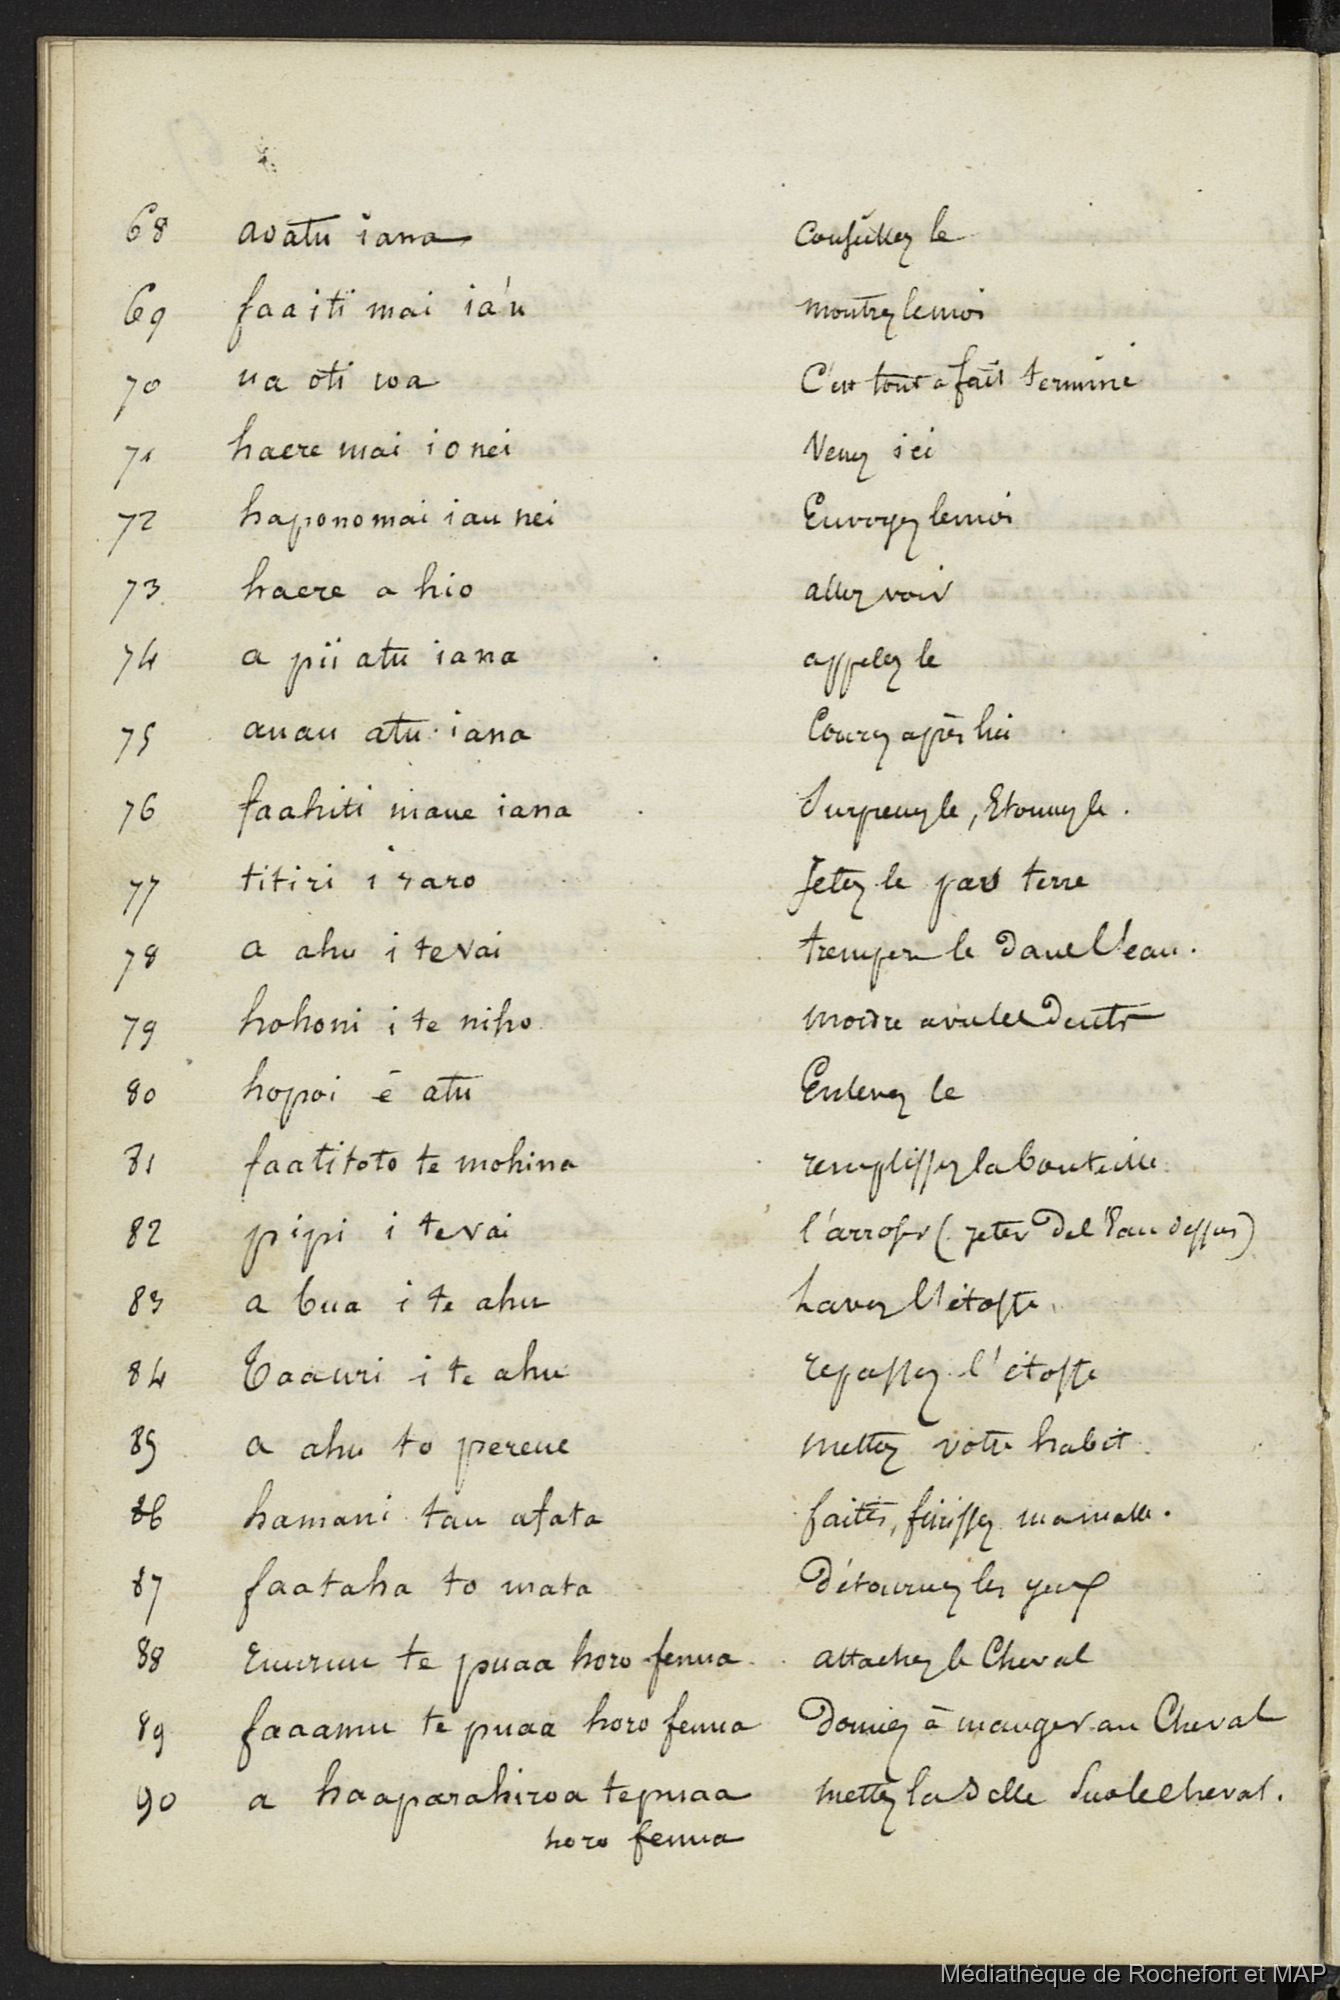 68 aoatu iana Conseillez le
69 faaiti mai ia'u montrez le moi
70 ua oti roa C'est tout a fait terminé
71 haere mai io nei Venez ici
72 haponomai iau nei Envoyez le moi
73 haere a hio allez voir
74 a pii atu iana appelez le
75 auau atu iana Courez après lui
76 faahiti maue iana Surprenez le, Etonnez le.
77 titiri i raro Jetez le par terre
78 a ahu i te vai tremper le dans l'eau.
79 hohoni i te niho mordre avec les Dents
80 hopoi ē atu Enlevez le
81 faatitoto te mohina remplissez la bouteille
82 pipi i te vai l'arroser (jeter de l'Eau dessus)
83 a bua i te ahu Lavez l'étoffe.
84 Taauri i te ahu repassez l'étoffe
85 a ahu to pereue mettez votre habit.
86 hamani tau afata faites, finissez ma malle.
87 faataha to mata Détournez les yeux
88 ruuruu te puaa horo fenua attachez le Cheval
89 faaamu te puaa horo fenua Donnez à manger au Cheval
90 a haaparahiroa te puaa mettez la Selle sur le cheval.
horo fenua
Médiathèque de Rochefort et MAP